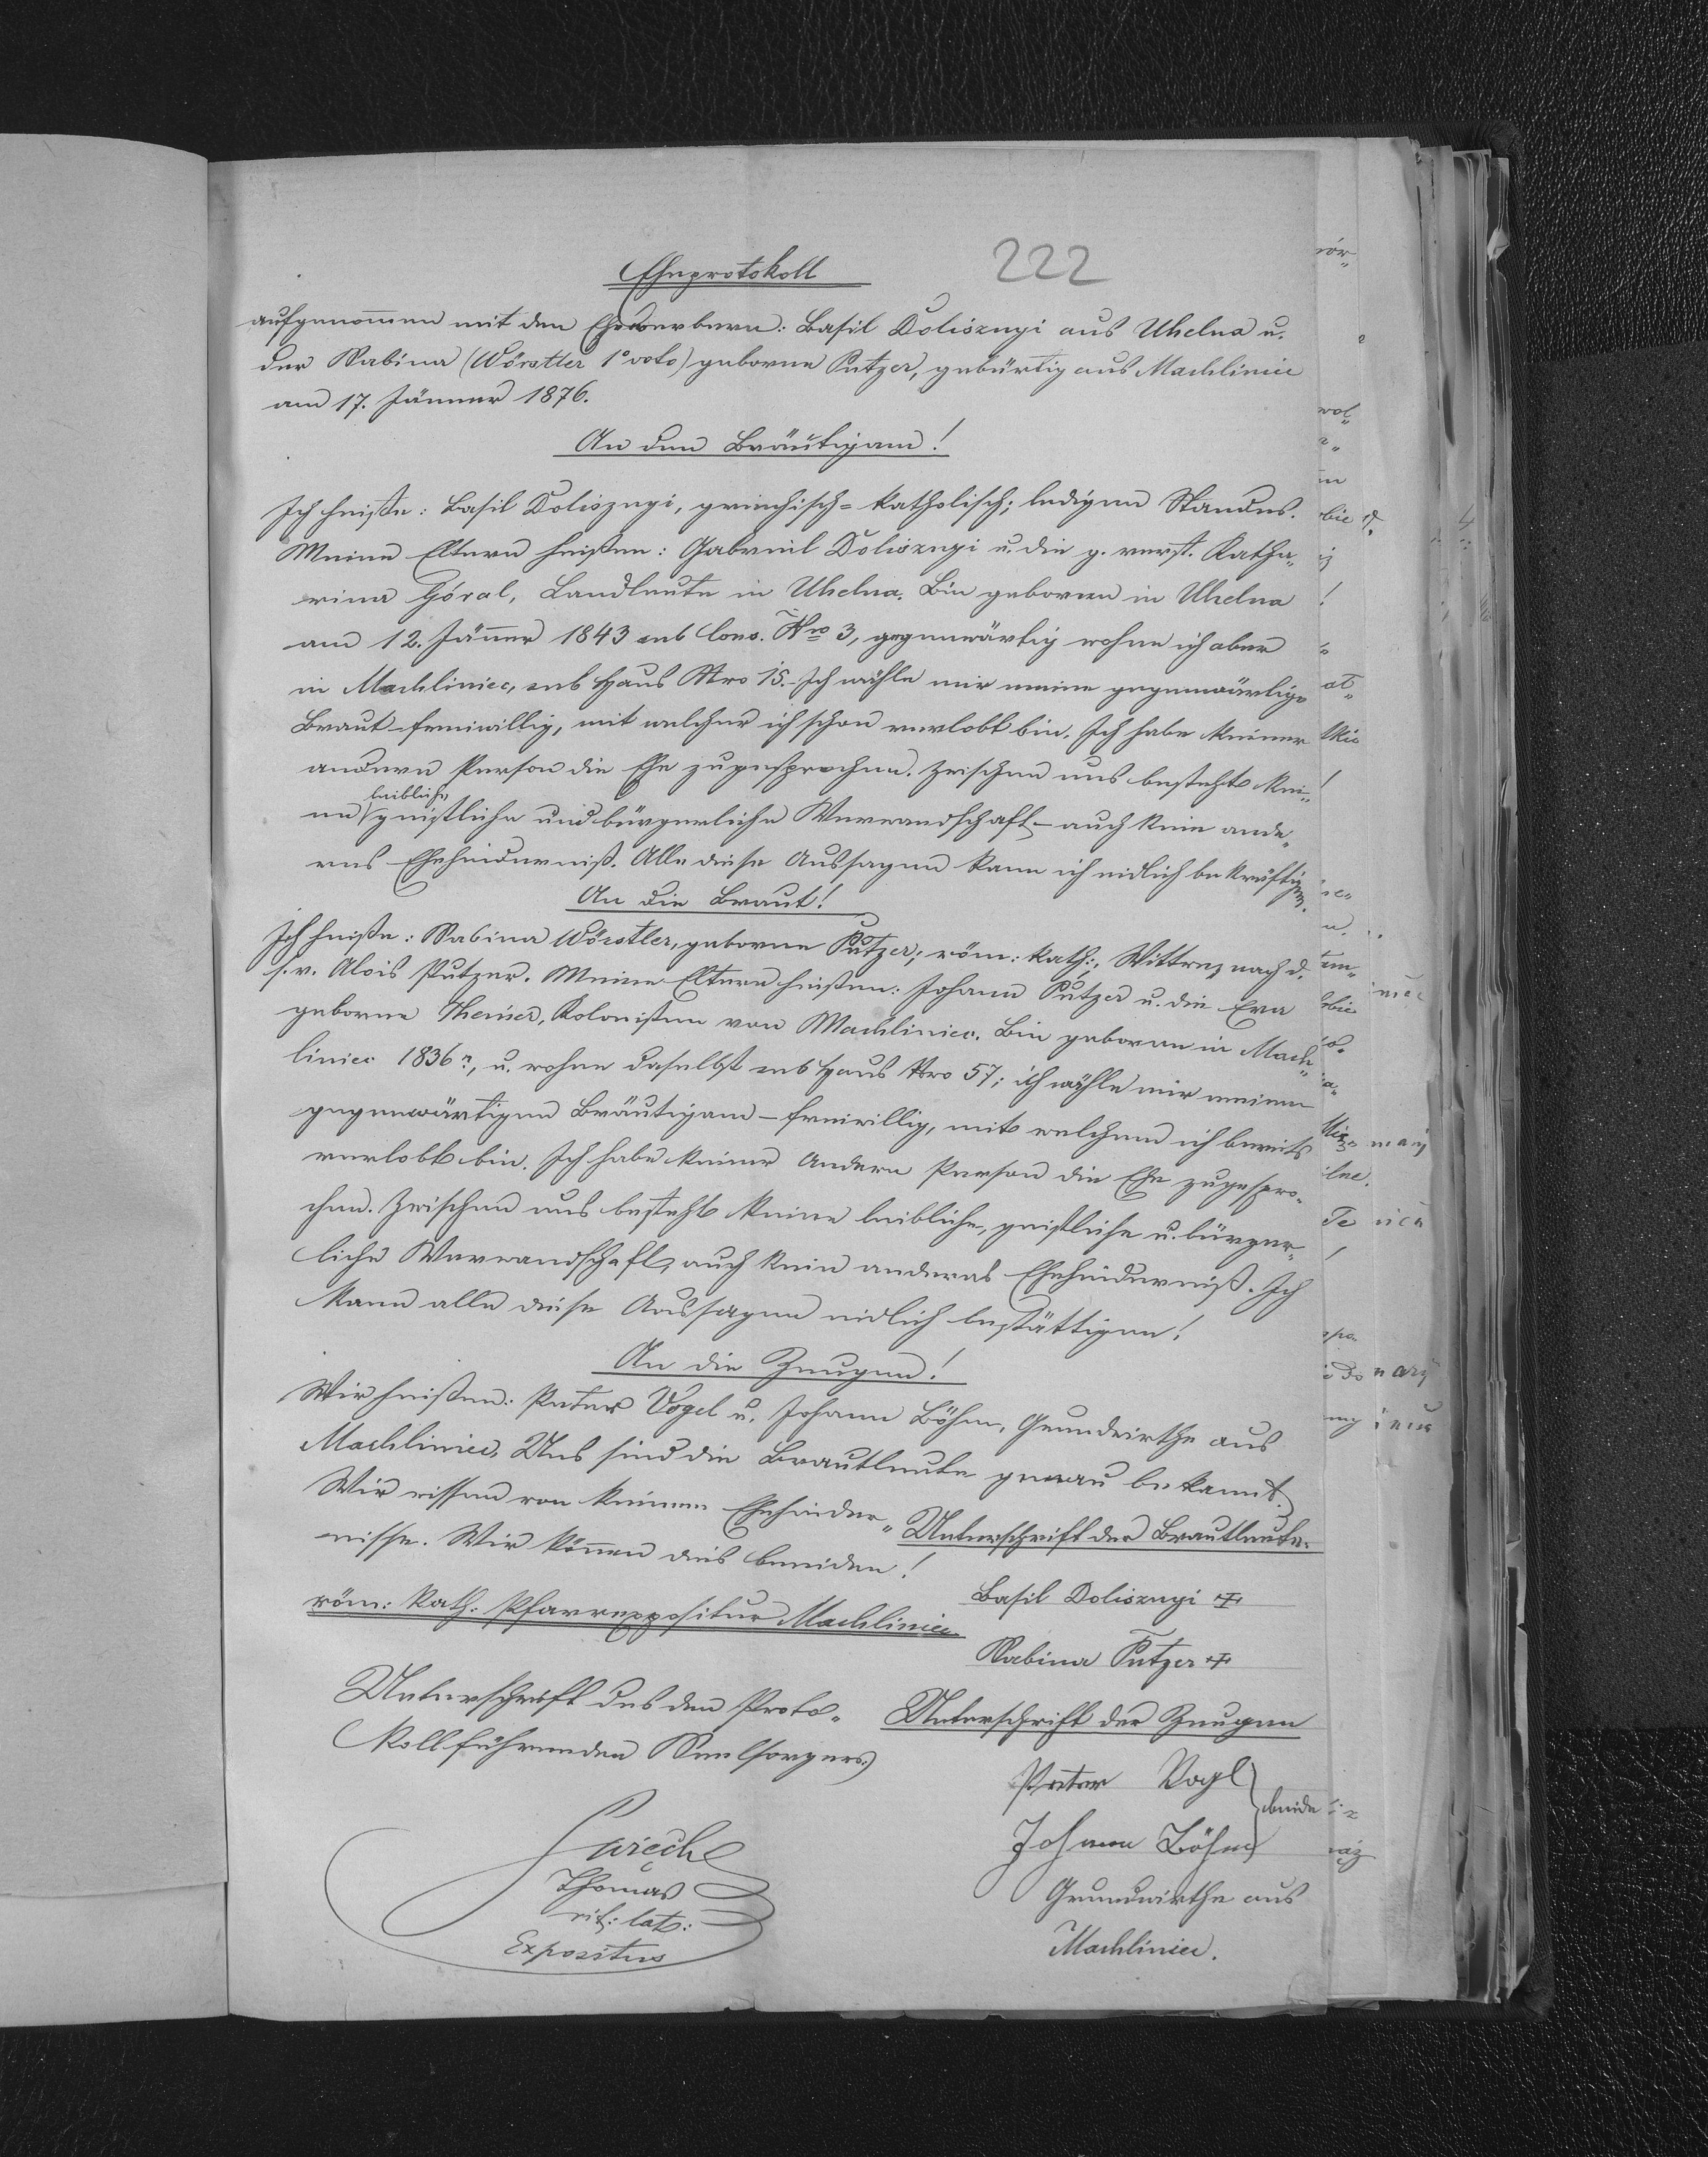 222
Eheprotokoll
aufgenommen mit den Ehewerbern: Basil Doliszngi aus Uhelna u.
der Sabina (Wörstler 1° voto) geborne Putzer, gebürtig aus Machliniec
am 17. Jänner 1876.
An den Bräutigam!
Ich heiße: Basil Doliszngi, griechisch-katholisch; ledigen Standes.
Meine Eltern heißen: Gabriel Doliszngi u. die g. verst. Katha„
rina Góral, Landleute in Uhelna. Bin geboren in Uhelna
am 12. Jänner 1843 sub Cons. Nro 3, gegenwärtig wohne ich aber
in Machliniec, sub Haus Nro 15. Ich wähle mir meine gegenwärtige
Braut freiwillig, mit welcher ich schon verlobt bin. Ich habe keiner
andern Person die Ehe zugesprochen. Zwischen uns besteht kei„
leibliche
ne geistliche und bürgerliche Verwandschaft – auch kein ande„
res Ehehinderniß. Alle diese Aussagen kann ich eidlich bekräftigen.
An die Braut!
Ich heiße: Sabina Wörstler, geborne Putzer; röm: kath:, Wittwe nach d.
s. v. Alois Putzer. Meine Eltern heißen: Johann Putzer u. die Eva
geborne Theiner, Kolonisten von Machliniec. Bin geboren in Mach„
liniec 1836, u. wohne daselbst sub Haus Nro 57; ich wähle mir meinen
gegenwärtigen Bräutigam – freiwillig, mit welchem ich bereits
verlobt bin. Ich habe keiner Andern Person die Ehe zugespro„
chen. Zwischen uns besteht keine leibliche, geistliche u. bürger„
liche Verwandschaft, auch kein anderes Ehehinderniß. Ich
kann alle diese Aussagen eidlich bestättigen!
An die Zeugen!
Wir heißen: Peter Vogel u. Johann Böhm, Grundwirthe aus
Machliniec. Uns sind die Brautleute genau bekannt.
Wir wissen von keinem Ehehinder„
nisse. Wir können dies beeiden!
röm: kath: Pfarrexpositur Machliniec
Unterschrift der Brautleute.
Basil Doliszngi +
Sabina Putzer +
Unterschrift des den Proto„
koll führenden Seelsorgers
Unterschrift der Zeugen
Peter Vogl
Johann Böhm
beide
Grundwirthe aus
Machliniec.
Thomas
rit: lat:
Expositus